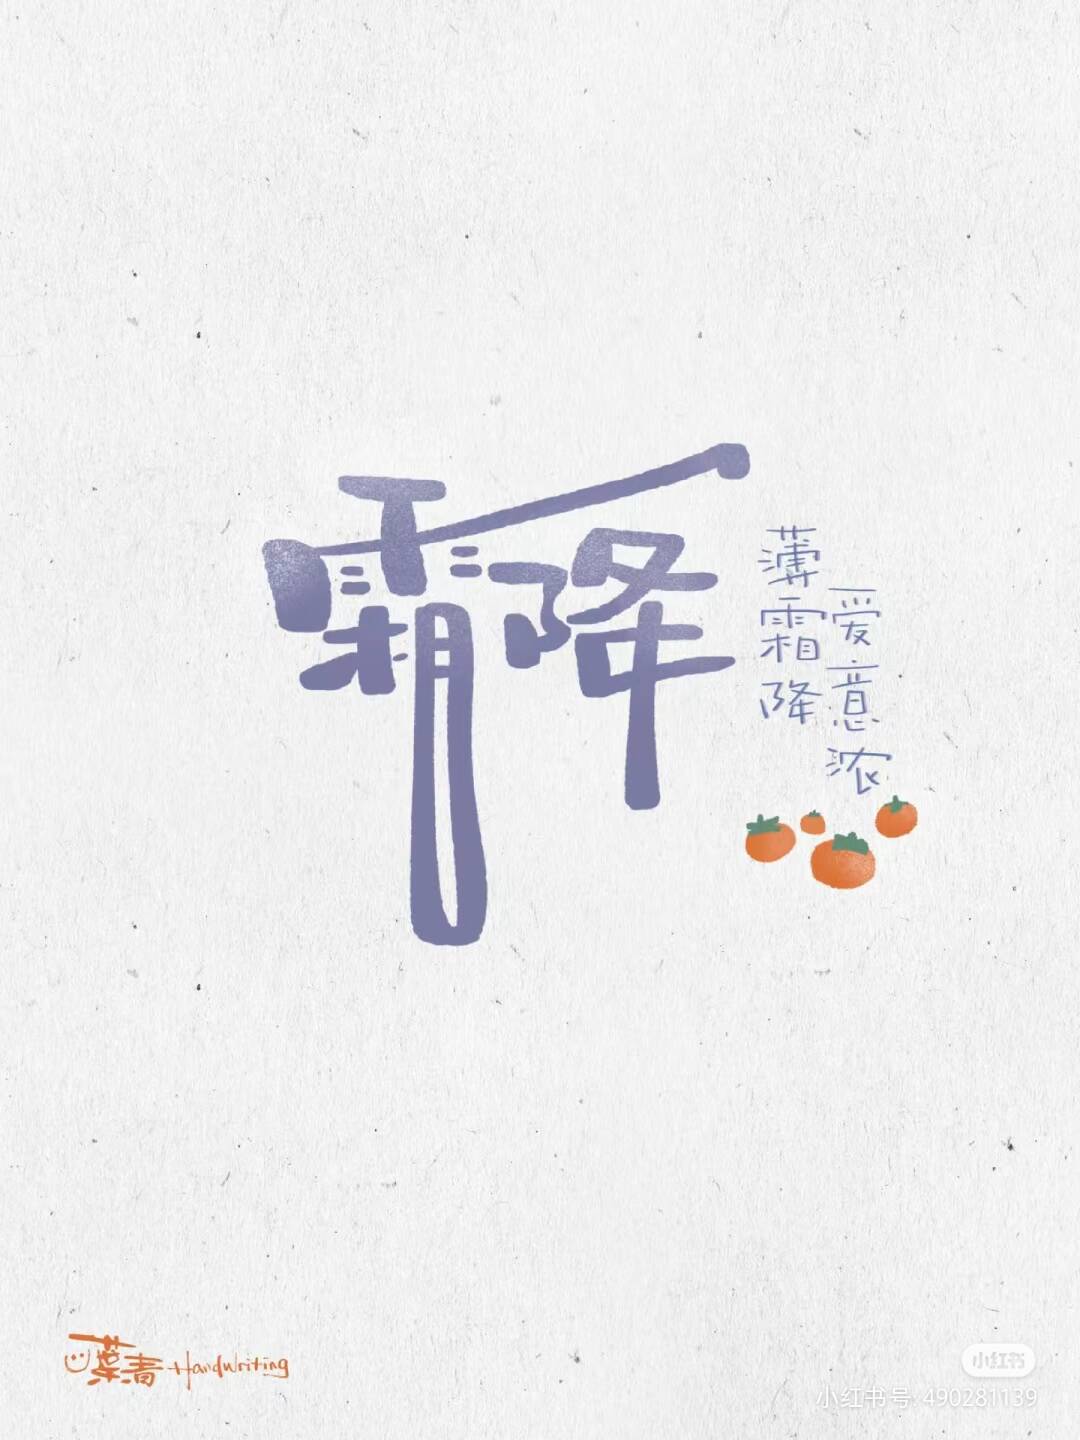 霜降
薄霜降
爱意浓
葉青 Handwriting
小红书
小红书号: 490281139